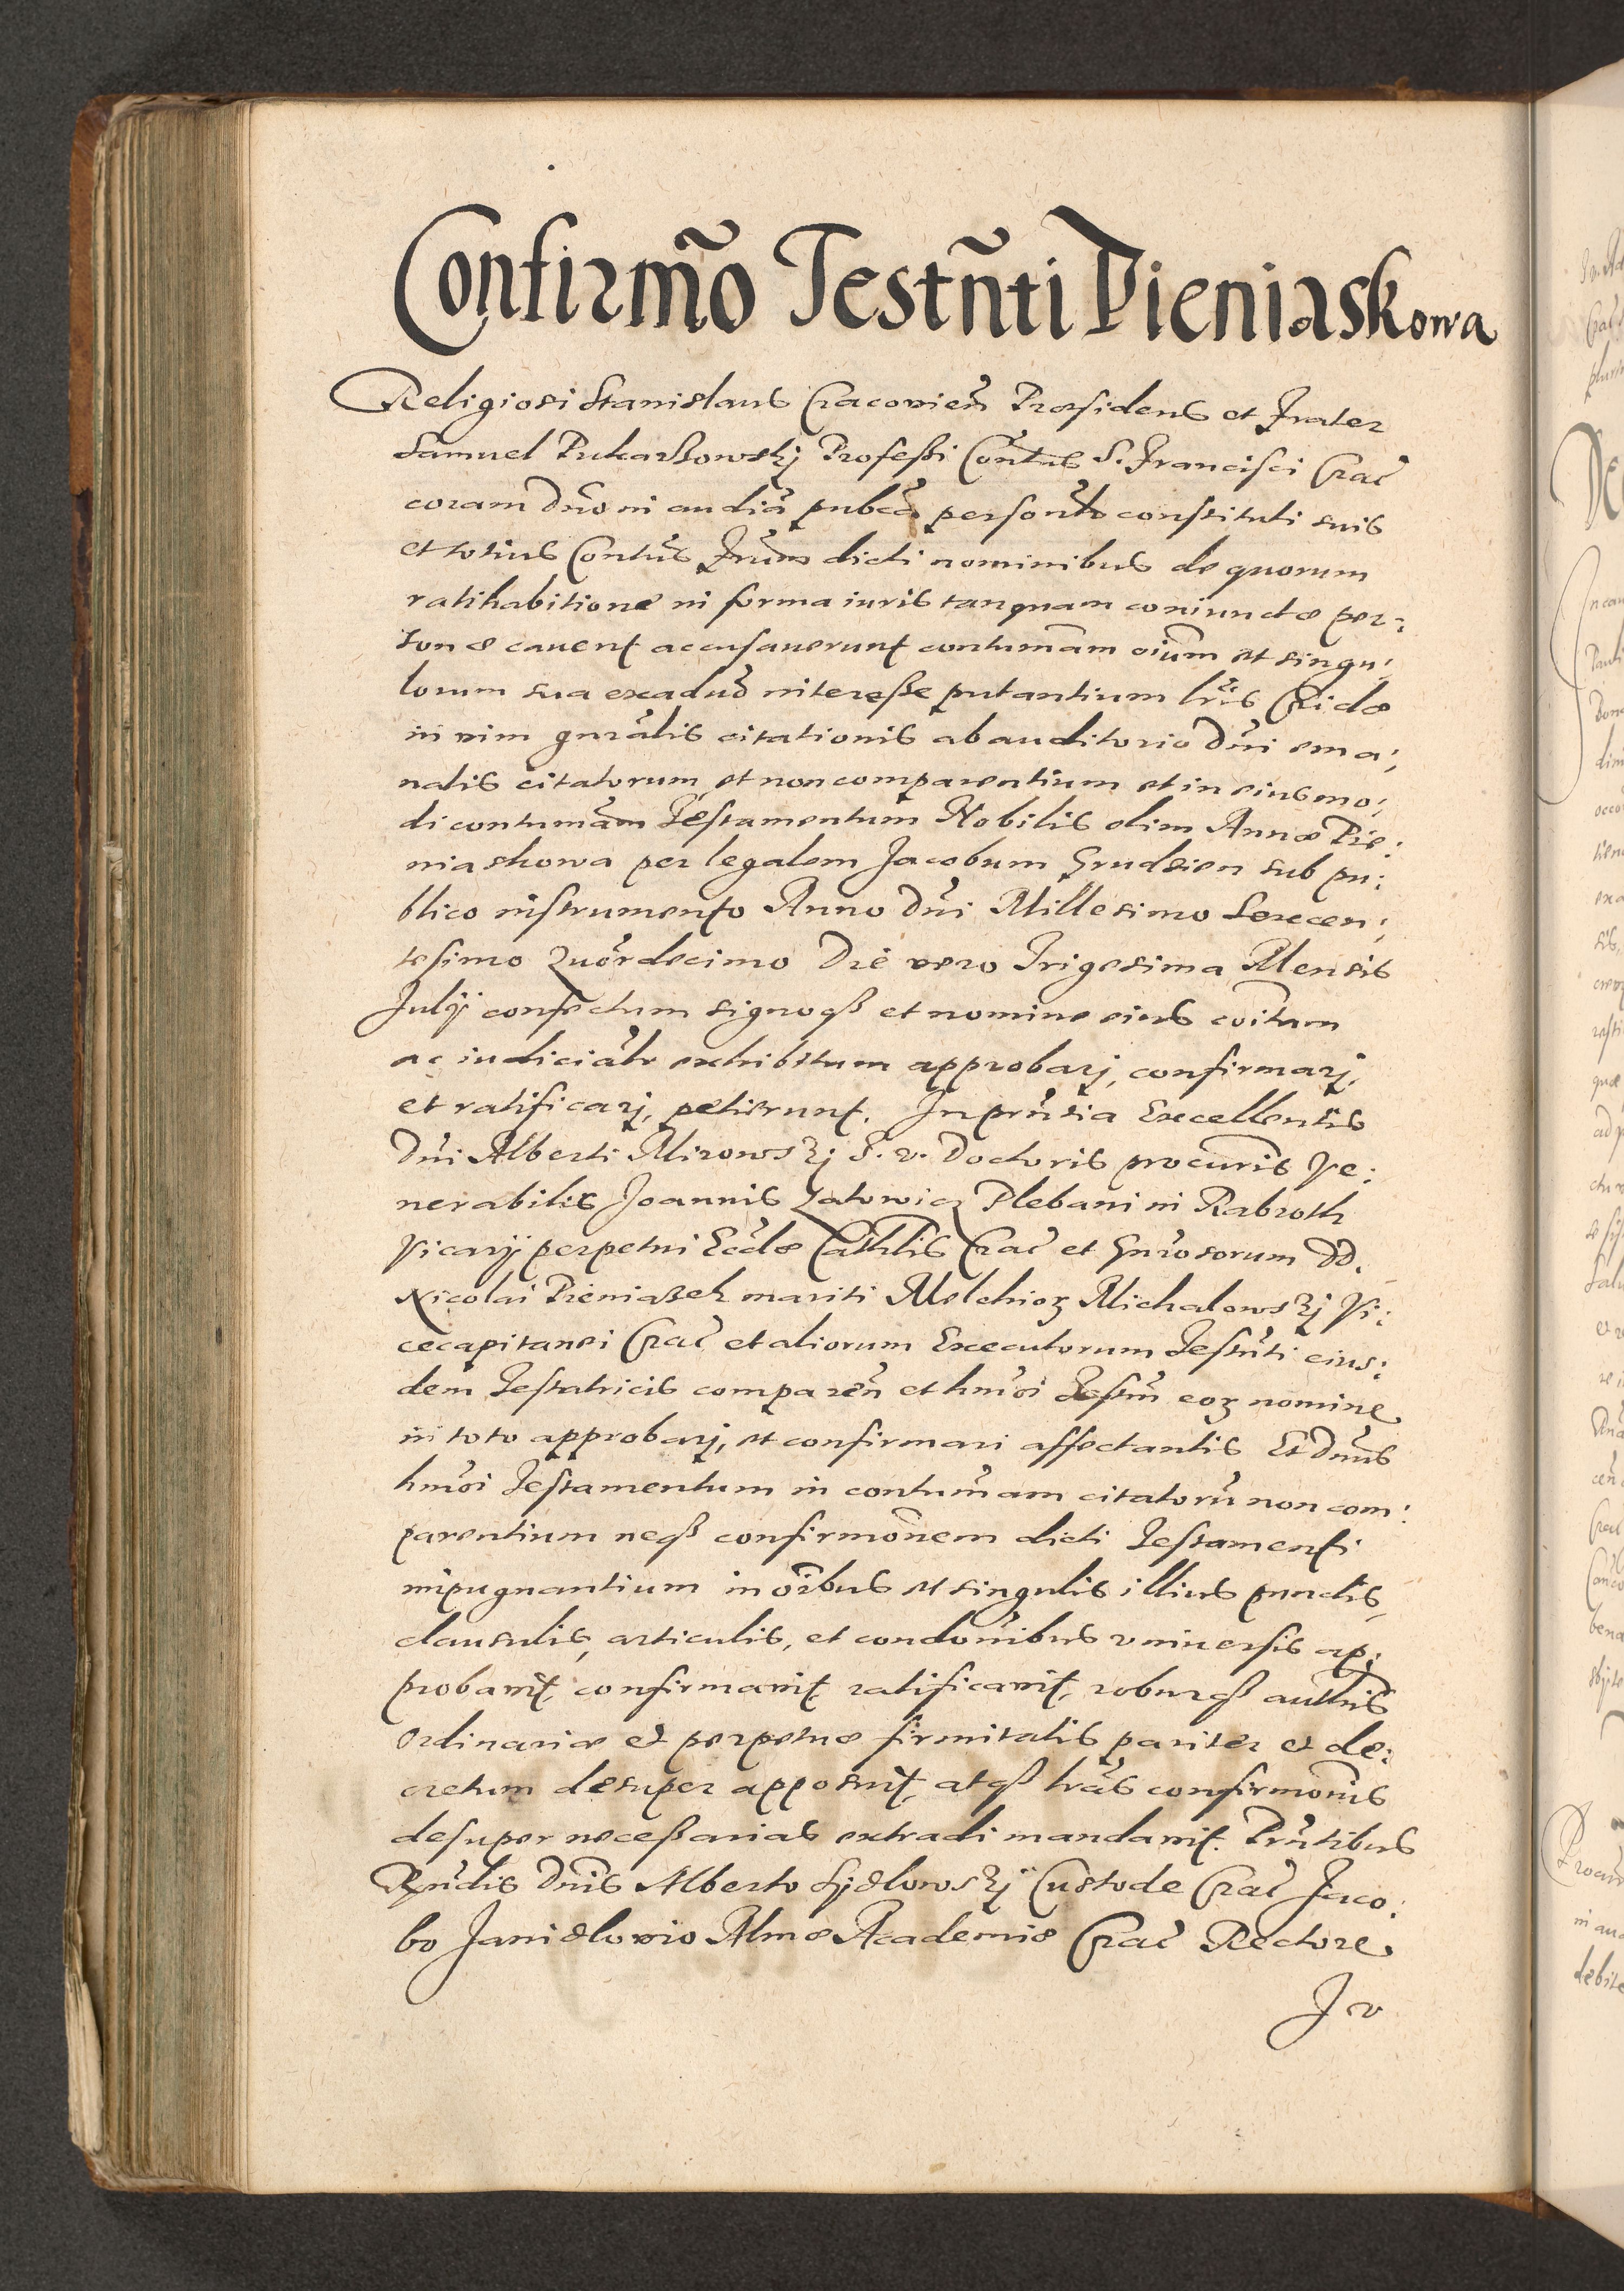 Confirmão Testñti Pieniaskowa
Religiosi Stanislaus Cracovien̄ Præsidens et Frater
Samuel Pukarßowskj Profeßi Contus S. Francisci Crac̄
coram Dño in audiã pubcã personlr constituti suis
et totius Contūs Frum dicti nominibus de quorum
ratihabitione in forma iuris tanquam coniunctæ per:
sonæ cavent accusaverunt contumãm oium et singu:
lorum sua exadūo intereße putantium lris Cridæ
in vim gnrālis citationis ab auditorio Dñi ema:
natis citatorum et non comparentium et in eiusmo:
di contumãm Testamentum Nobilis olim Annæ Pie:
niaskowa per legalem Jacobum Grudzien sub pu:
blico instrumento Anno Dñi Millesimo Sexcen:
tesimo Quārdecimo Die vero Trigesima Mensis
Julij confectum signoqß et nomine eius coitum
ac iudicialr exhibitum approbarj, confirmarj,
et ratificarj, petierunt. In prñtia Excellentis
Dñi Alberti Mirowskj J. v. Doctoris procuris Ve:
nerabilis Joannis Zatowicz Plebani in Rabroth
Vicarij perpetui Eccl̄æ Cathlis Crac̄ et Gnrosorum DD.
Nicolai Pieniaßek mariti Melchioꝝ Michalowskj Vi:
cecapitanei Crac̄ et aliorum Executorum Testñti eius:
dem Testatricis comparēn et hmōi Testm̄ eoꝝ nomine
in toto approbarj, et confirmari affectantis Et Dnūs
hmōi Testamentum in contumãm citatorū non com:
parentium neqß confirmōnem dicti Testamenti
impugnantium in oībus et singulis illius punctis,
clausulis, articulis, et condōnibus universis ap:
probavit, confirmavit, ratificavit, roburqß authtis
ordinariæ et perpetuæ firmitatis pariter et de:
cretum desuper apposuit, atqß lrãs confirmōnis
desuper neceßarias extradi mandavit. Prñtibus
Rñdis Dnīs Alberto Sżidlowskj Custode Crac̄ Jaco:
bo Janidlovio Almæ Academiæ Crac̄ Rectore
J v